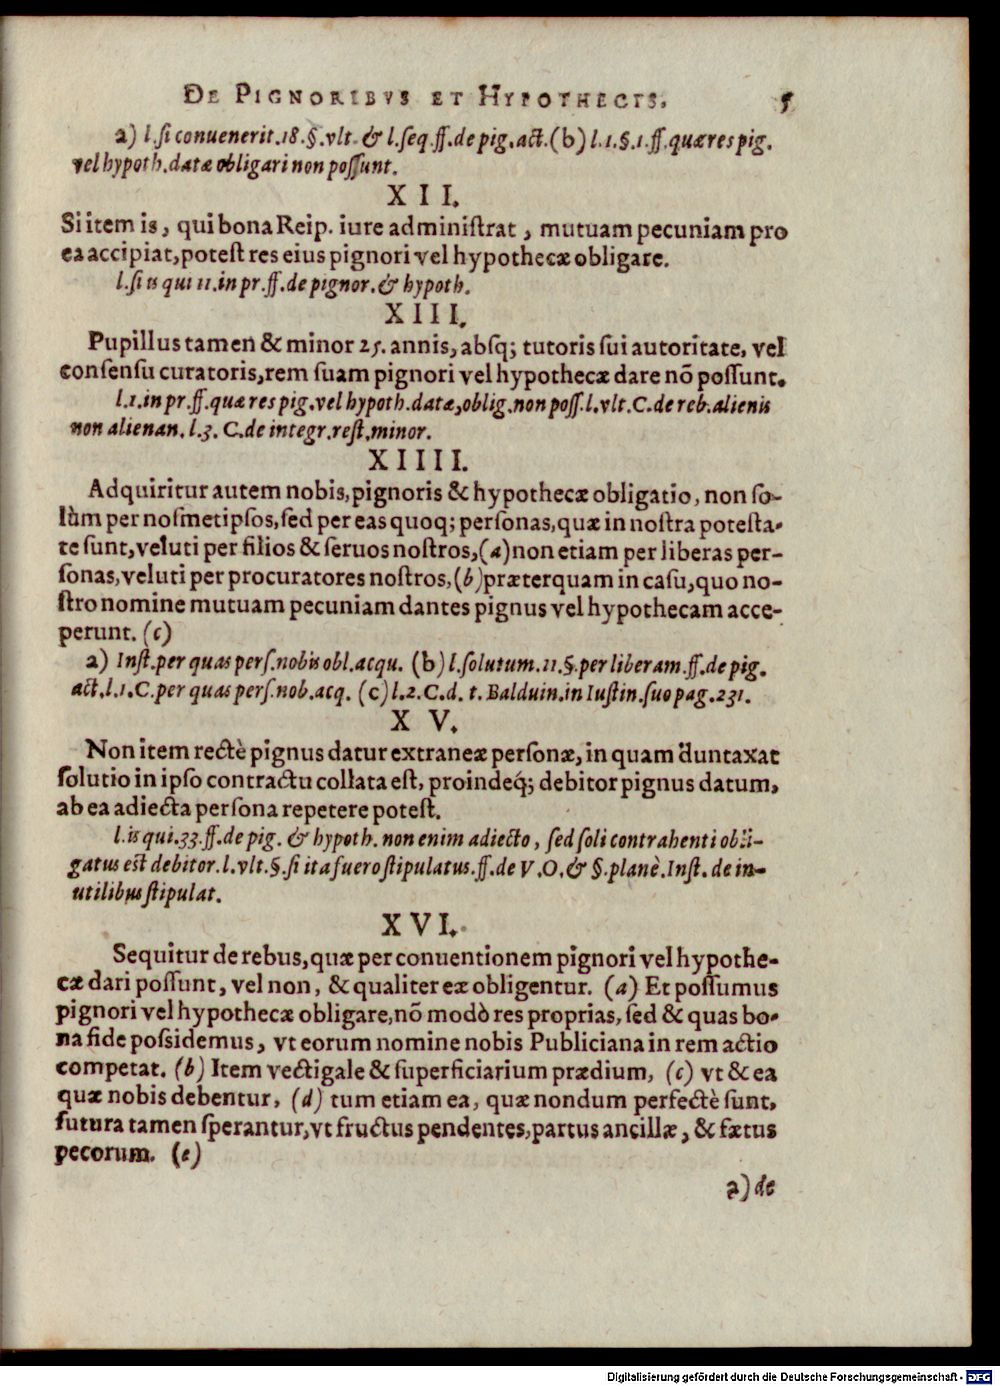 DE PIGNORIBVS ET HYPOTHECIS. 5
a) l.si conuenerit.18.§.vlt. & l.seq.ff.de pig.act.(b) l.1.§.1.ff.quæ res pig.
vel hypoth.datæ obligari non possunt.
XII.
Si item is, qui bona Reip. iure administrat, mutuam pecuniam pro
ea accipiat, potest res eius pignori vel hypothecæ obligare.
l.si is qui 11.in pr.ff.de pignor.& hypoth.
XIII.
Pupillus tamen & minor 25. annis, absq; tutoris sui autoritate, vel
consensu curatoris, rem suam pignori vel hypothecæ dare nõ possunt.
l.1.in pr.ff.quæ res pig.vel hypoth.datæ,oblig.non poss.l.vlt.C.de reb.alienis
non alienan.l.3. C.de integr.rest.minor.
XIIII.
Adquiritur autem nobis, pignoris & hypothecæ obligatio, non so-
lùm per nosmetipsos, sed per eas quoq; personas, quæ in nostra potesta-
te sunt, veluti per filios & seruos nostros, (a) non etiam per liberas per-
sonas, veluti per procuratores nostros, (b) præterquam in casu, quo no-
stro nomine mutuam pecuniam dantes pignus vel hypothecam acce-
perunt. (c)
a) Inst.per quas pers.nobis obl.acqu. (b) l.solutum.11.§.per liberam.ff.de pig.
act.l.1.C.per quas pers.nob.acq. (c) l.2.C.d. t.Balduin.in Iustin.suo pag.231.
XV.
Non item rectè pignus datur extraneæ personæ, in quam duntaxat
solutio in ipso contractu collata est, proindeq́; debitor pignus datum,
ab ea adiecta persona repetere potest.
l.is qui.33.ff.de pig. & hypoth. non enim adiecto, sed soli contrahenti obli-
gatus est debitor.l.vlt.§.si ita fuero stipulatus.ff.de V.O.& §.planè.Inst.de in-
utilibus stipulat.
XVI.
Sequitur de rebus, quæ per conuentionem pignori vel hypothe-
cæ dari possunt, vel non, & qualiter eæ obligentur. (a) Et possumus
pignori vel hypothecæ obligare, nõ modò res proprias, sed & quas bo-
na fide possidemus, vt eorum nomine nobis Publiciana in rem actio
competat. (b) Item vectigale & superficiarium prædium, (c) vt & ea
quæ nobis debentur, (d) tum etiam ea, quæ nondum perfectè sunt,
futura tamen sperantur, vt fructus pendentes, partus ancillæ, & fætus
pecorum. (e)
a) de
Digitalisierung gefördert durch die Deutsche Forschungsgemeinschaft - DFG